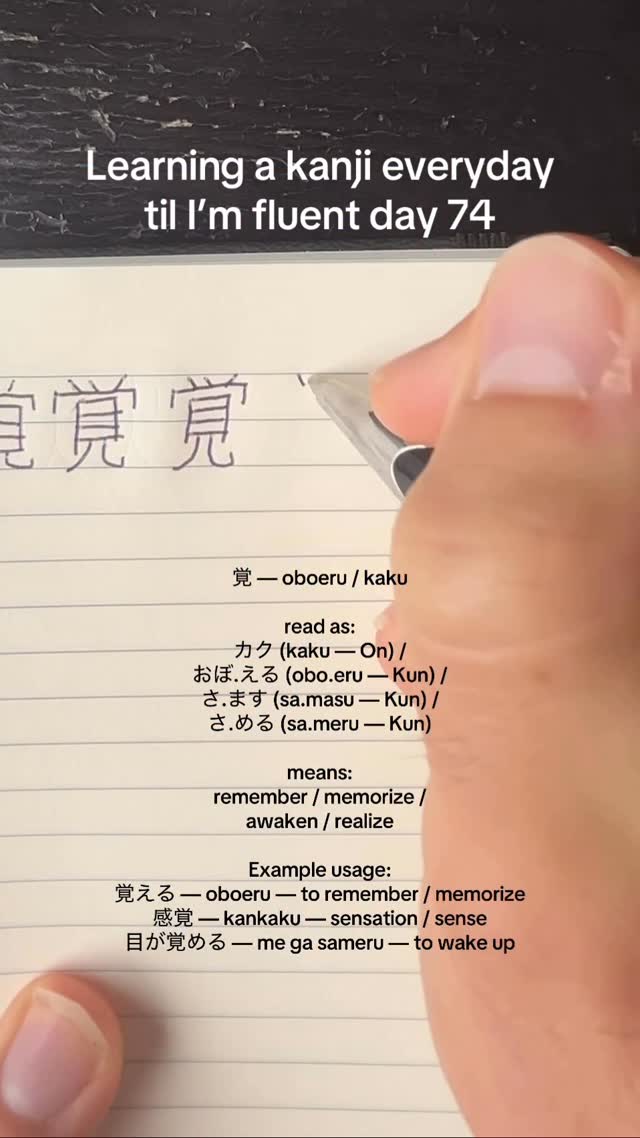 Learning a kanji everyday
til I'm fluent day 74
覚 覚 覚
覚 — oboeru / kaku
read as:
カク (kaku — On) /
おぼ.える (obo.eru — Kun) /
さ.ます (sa.masu — Kun) /
さ.める (sa.meru — Kun)
means:
remember / memorize /
awaken / realize
Example usage:
覚える — oboeru — to remember / memorize
感覚 — kankaku — sensation / sense
目が覚める — me ga sameru — to wake up